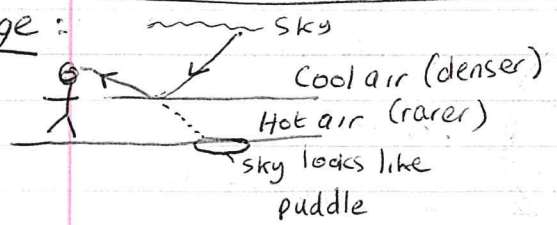 ge :
Sky
Cool air (denser)
Hot air (rarer)
sky looks like
puddle